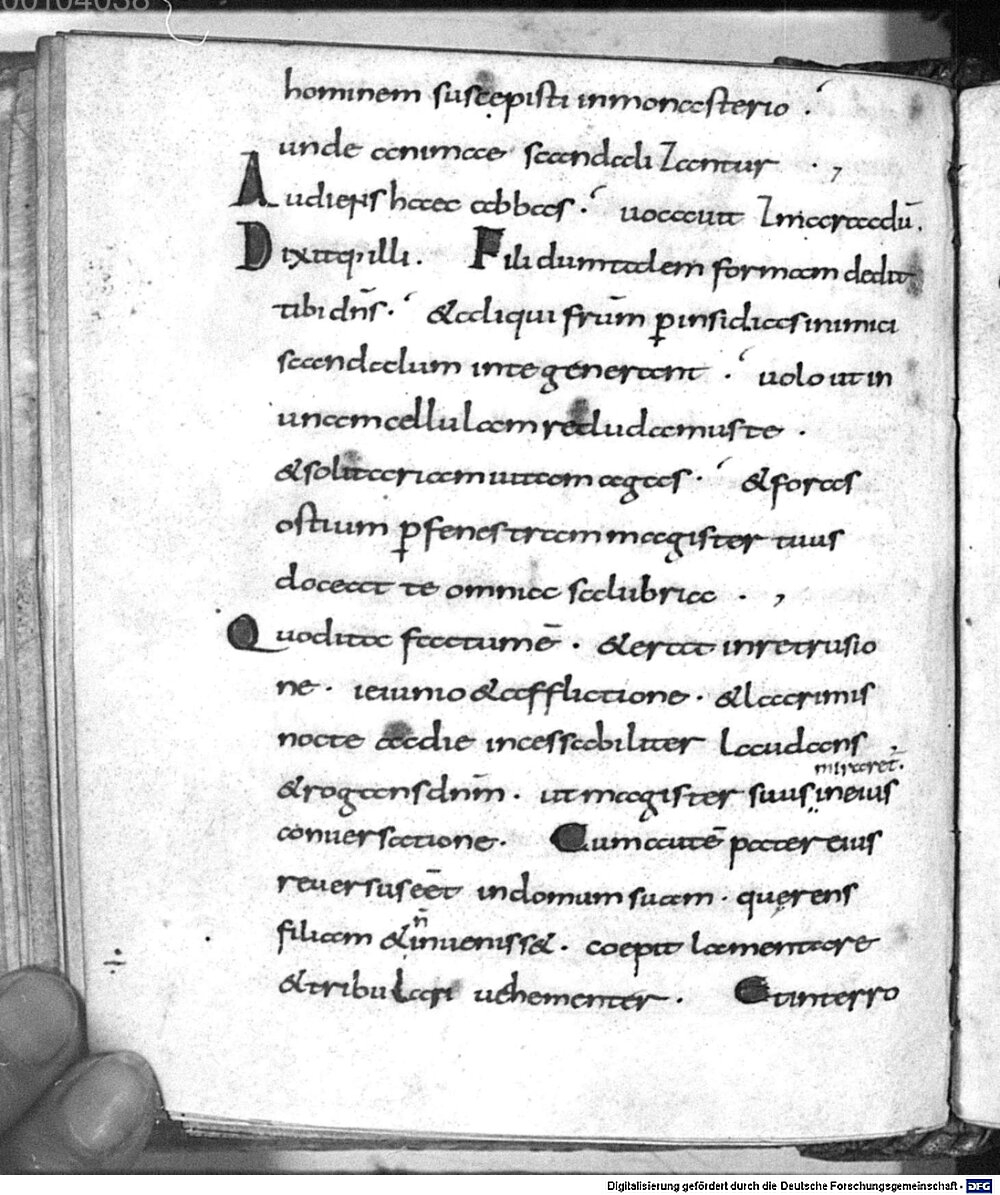 00104038
hominem suscepisti inmonasterio .
unde animae scandali Zantur . ,
Audiens haec abbas . uocauit Zmaracdū .
Dixitq; illi . Fili dum talem formam dedit
tibi dn̄s . & aliqui frūm ꝑ insidias inimici
scandalum inte generant . uolo ut in
unam cellulam recludamus te .
& solitariam uitam agas . & foras
ostium ꝑ fenestram magister tuus
doceat te omnia salubria . ,
Quod ita factum ē . & erat inretrusio
ne . ieiunio & afflictione . & lacrimis
nocte acdie incessabiliter laudans .
miraret̄ .
& rogans dn̄m . ut magister suus ineius
conuersatione . Cum autē pater eius
reuersus eēt indomum suam . querens
n̄
filiam & inuenisset . coepit lamentare
& tribulari uehementer . Et interro
÷
Digitalisierung gefördert durch die Deutsche Forschungsgemeinschaft - DFG